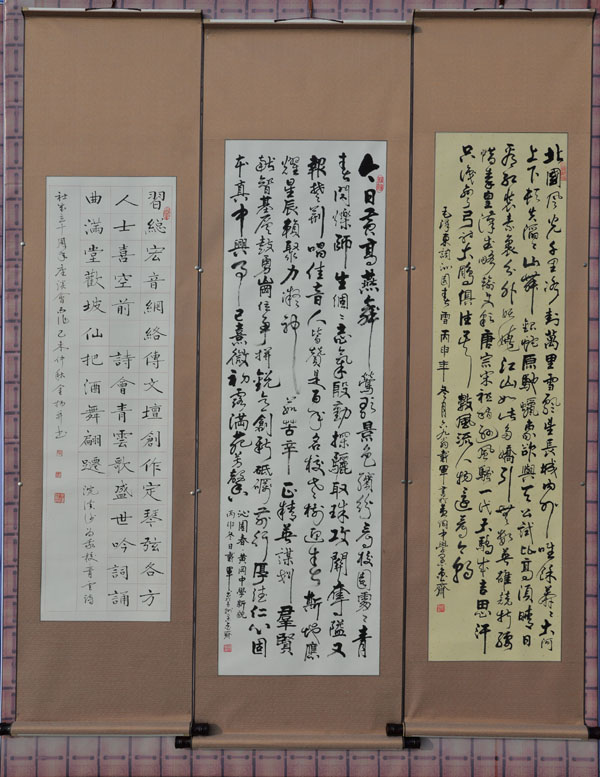 北國風光千里冰封萬里雪飄望長城內外唯餘莽々大河
上下頓失滔々山舞銀蛇原馳蠟象欲與天公試比高須晴日
看紅裝素裹分外妖嬈江山如此多嬌引無數英雄競折腰
惜秦皇漢武略輸文采唐宗宋祖稍遜風騷一代天驕成吉思汗
只識彎弓射大鵰俱往矣數風流人物還看今朝
毛澤東詞沁園春雪丙申年冬月六九翁戴軍書於黃岡中學齋
今日黃高燕舞鶯歌景色繽紛看校園處々青
春閃爍師生個々志氣殷勤探驪取珠攻關奪隘又
報楚荊唱佳音人皆贊是百年名校老樹逢生
耀星辰賴聚力凝神茹苦辛正精英謀划群賢
獻智基层鼓勇崗位爭揮銳意創新砥礪前行厚德仁心固
本真中興了已熹微初露滿苑芳馨
沁園春黃岡中學新貌
丙申冬日戴軍
習總宏音網絡傳文壇創作定琴弦各方
人士喜空前詩會青雲歌盛世吟詞誦
曲滿堂歡坡仙把酒舞翩躚浣溪沙為我校青雲詩
社第三十周年座談會而作己未仲秋